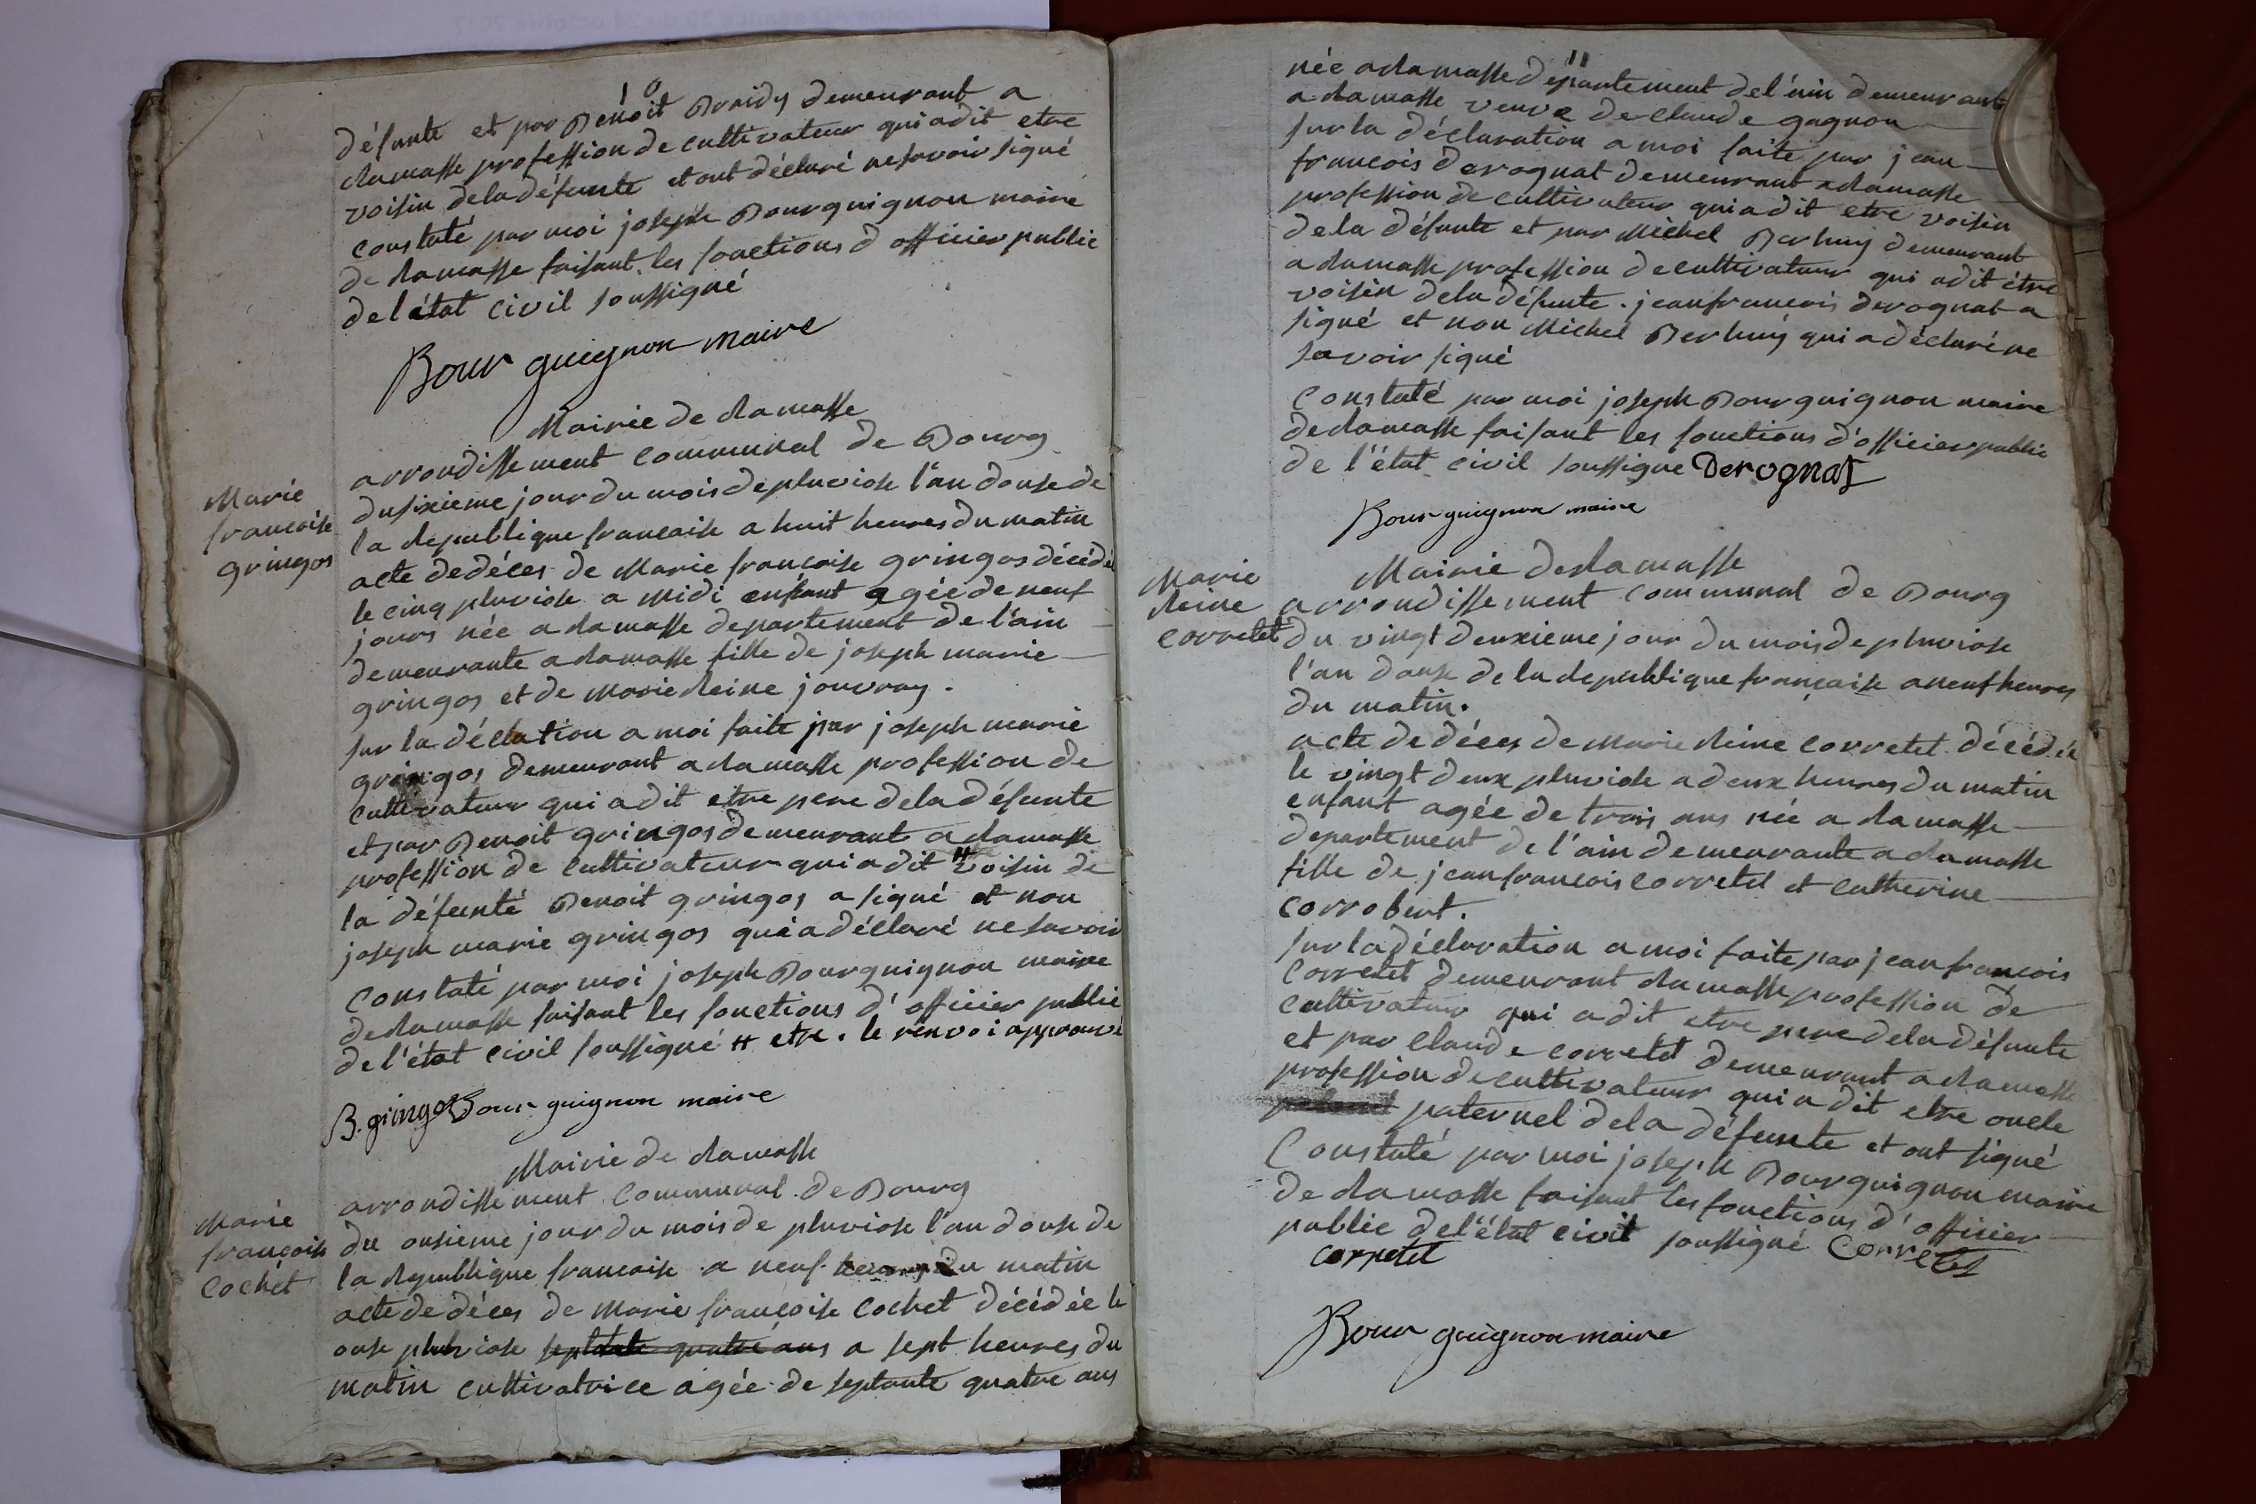 10
défunte et par Bénoit Braidy demeurant a
ramasse profession de cultivateur qui a dit etre
voisin de la défunte et ont déclaré ne savoir signé
constaté par moi joseph Bourguignon maire
de ramasse faisant les fonctions d officier public
de l état civil soussigné
Bourguignon maire
Mairie de ramasse
arrondissement communal de Bourg
Marie
francoise
gringos
du sixieme jour du mois de pluviose l'an douse de
la republique francaise a huit heures du matin
acte de déces de Marie francoise gringos décédée
le cinq pluviose a midi enfant agée de neuf
jours née a ramasse departement de l'ain
demeurante a ramasse fille de joseph marie
gringos et de Marie Reine jouvray.
sur la déclation a moi faite par joseph marie
gringos demeurant a ramasse profession de
cultivateur qui a dit etre pere de la défunte
et par Benoit gringos demeurant a ramasse
profession de cultivateur qui a dit # voisin de
la défunte Benoit gringos a signé et non
joseph marie gringos qui a déclaré ne savoir
constaté par moi joseph Bourguignon maire
de ramasse faisant les fonctions d' officier public
de l'état civil soussigné # etre. le renvoi approuvé
B. gringos Bourguignon maire
Mairie de ramasse
arrondissement communal de Bourg
Marie
francoise
Cochet
du onsieme jour du mois de pluviose l'an douse de
la republique francaise a neuf heures du matin
acte de déces de Marie francoise Cochet décédée le
onse pluviose septante quatre ans a sept heures du
matin cultivatrice agée de septante quatre ans
11
née a ramasse département de l'ain demeurant
a ramasse veuve de claude gagnon
sur la déclaration a moi faite par jean
francois derognat demeurant a ramasse
profession de cultivateur qui a dit etre voisin
de la défunte et par Michel demeurant
a ramasse profession de cultivateur qui a dit étre
voisin de la défunte. jean francois derognat a
signé et non Michel qui a déclaré ne
savoir signé
Constaté par moi joseph Bourguignon maire
de ramasse faisant les fonctions d'officier public
de l'état civil soussigne Derognat
Bourguignon maire
Mairie de ramasse
Marie
Reine
corretet
arrondissement communal de Bourg
du vingt deuxieme jour du mois de pluviose
l'an douse de la republique française a neuf heures
du matin.
acte de déces de Marie Reine corretet décédée
le vingt deux pluviose a deux heures du matin
enfant agée de trois ans née a ramasse
departement de l'ain demeurante a ramasse
fille de jean francois corretet et catherine
corrobert.
sur la déclaration a moi faite par jean francois
corretet demeurant ramasse profession de
cultivateur qui a dit etre pere de la défunte
et par claude corretet demeurant a ramasse
profession de cultivateur qui a dit etre oncle
paternel de la défunte et ont signé
Constaté par moi joseph Bourguignon maire
de ramasse faisant les fonctions d' officier
public de l'état civil soussigné Corretet
corretet
Bourguignon maire